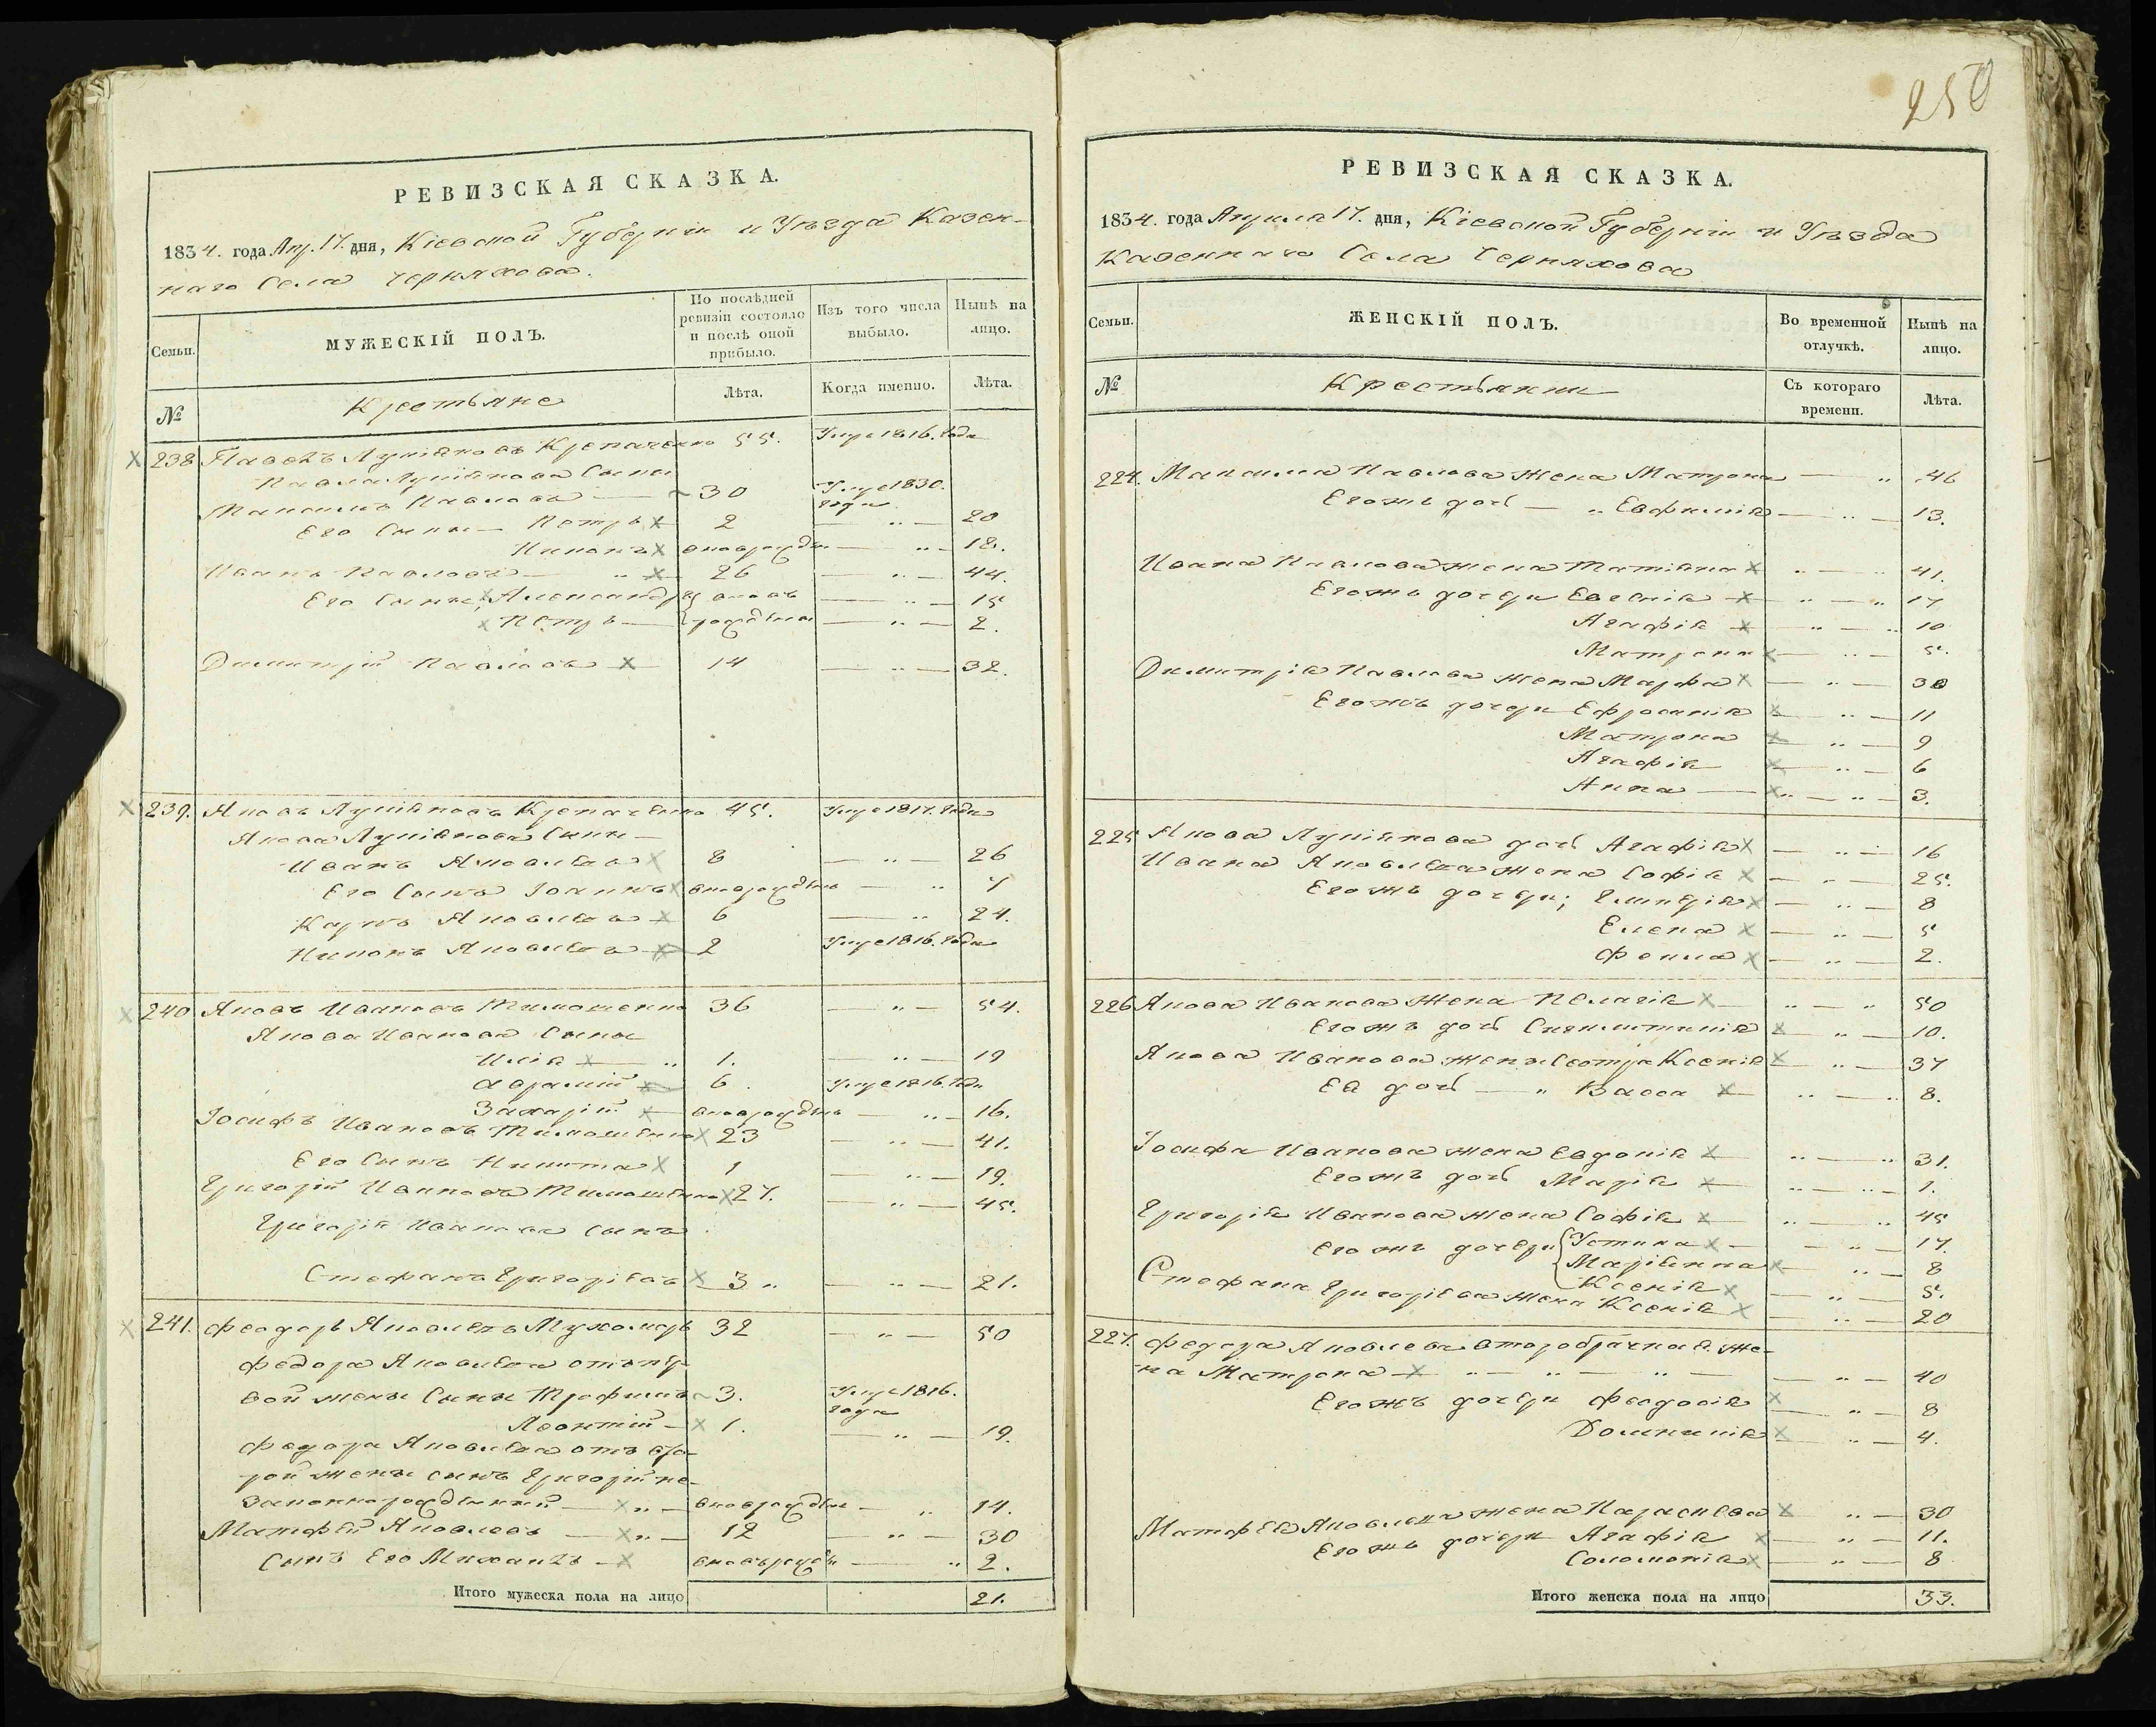 250
РЕВИЗСКАЯ СКАЗКА.
1834. года Апр. 17. дня, Кіевской Губерніи и Уѣзда Казен-
наго Села Черняхова.
Семьи.
МУЖЕСКІЙ ПОЛЪ.
По послѣдней ревизіи состояло и послѣ оной прибыло.
Изъ того числа выбыло.
Нынѣ на лицо.
№
Крестьяне
Лѣта.
Когда именно.
Лѣта.
238 Павелъ Лукіяновъ 55. Умре 1816. года
Павла Лукіянова Сыны
Максимъ Павловъ — 30 Умре 1830. года
Его Сыны — Петръ 2 — 20
Никонъ — 18.
Иванъ Павловъ — 26 — 44.
Его Сыны, Александръ — 15
Петръ — рожденн — 2.
Димитрій Павловъ — 14 — 32.
239. Яковъ Лукіяновъ 45. Умре 1817. года
Якова Лукіянова Сыны —
Иванъ Яковлевъ 8 — 26
Его Сынъ Іоаннъ — 7
Карпъ Яковлевъ 6 — 24.
Никонъ Яковлевъ 2 Умре 1816. года
240 Яковъ Ивановъ Тимошенко 36 — 54.
Якова Иванова Сыны
Илія — 1. — 19
Аврамій 6. Умре 1816. года
Захарій — 16.
Іосифъ Ивановъ Тимошенко 23 — 41.
Его Сынъ Никита 1 — 19.
Григорій Ивановъ Тимошенко 27. — 45.
Григорія Иванова Сынъ
Стефанъ Григоріевъ 3 — 21.
241. Феодоръ Яковлевъ Мухоморъ 32 — 50
Федора Яковлева отъ пер-
вой жены Сыны Трофимъ 3. Умре 1816. года
Леонтій — 1. — 19.
Федора Яковлева отъ вто-
рой жены сынъ Григорій не-
законнорожденный — — 14.
Матфей Яковлевъ — 12 — 30
Сынъ Его Михаилъ — — 2.
Итого мужеска пола на лицо 21.
РЕВИЗСКАЯ СКАЗКА.
1834. года Апреля 17. дня, Кіевской Губерніи и Уѣзда
Казеннаго Села Черняхова
Семьи.
ЖЕНСКІЙ ПОЛЪ.
Во временной отлучкѣ.
Нынѣ на лицо.
№
Крестьянки
Съ котораго времени.
Лѣта.
224. Максима Павлова жена Матрона — 46
Егожъ дочь — Евфимія — 13.
Ивана Павлова жена Татіяна 41.
Егожъ дочери Евгенія 17
Агафія 10
Матрона 5.
Димитрія Павлова жена Марфа — 30
Егожъ дочери Ефросинія — 11
Матрона — 9
Агафія — 6
Анна — 3.
225 Якова Лукіянова дочь Агафія — 16
Ивана Яковлева жена Софія — 25.
Егожъ дочери; — 8
Елена — 5
Фекла — 2.
226 Якова Иванова жена Пелагія 50
Егожъ дочь Синклитикія — 10.
Якова Иванова жены Сестра Ксенія — 37
Ея дочь — Васса 8.
Іосифа Иванова жена Евдокія 31.
Егожъ дочь Марія 1.
Григорія Иванова жена Софія 45
Егожъ дочери Устина — 17.
Маріянна — 8
Ксенія — 5.
Стефана Григоріева жена Ксенія — 20
227. Федора Яковлева второбрачная же-
на Матрона — 40
Егожъ дочери Феодосія — 8
Домникія — 4.
Матфея Яковлева жена Параскева — 30
Егожъ дочери Агафія — 11.
Соломонія — 8
Итого женска пола на лицо 33.